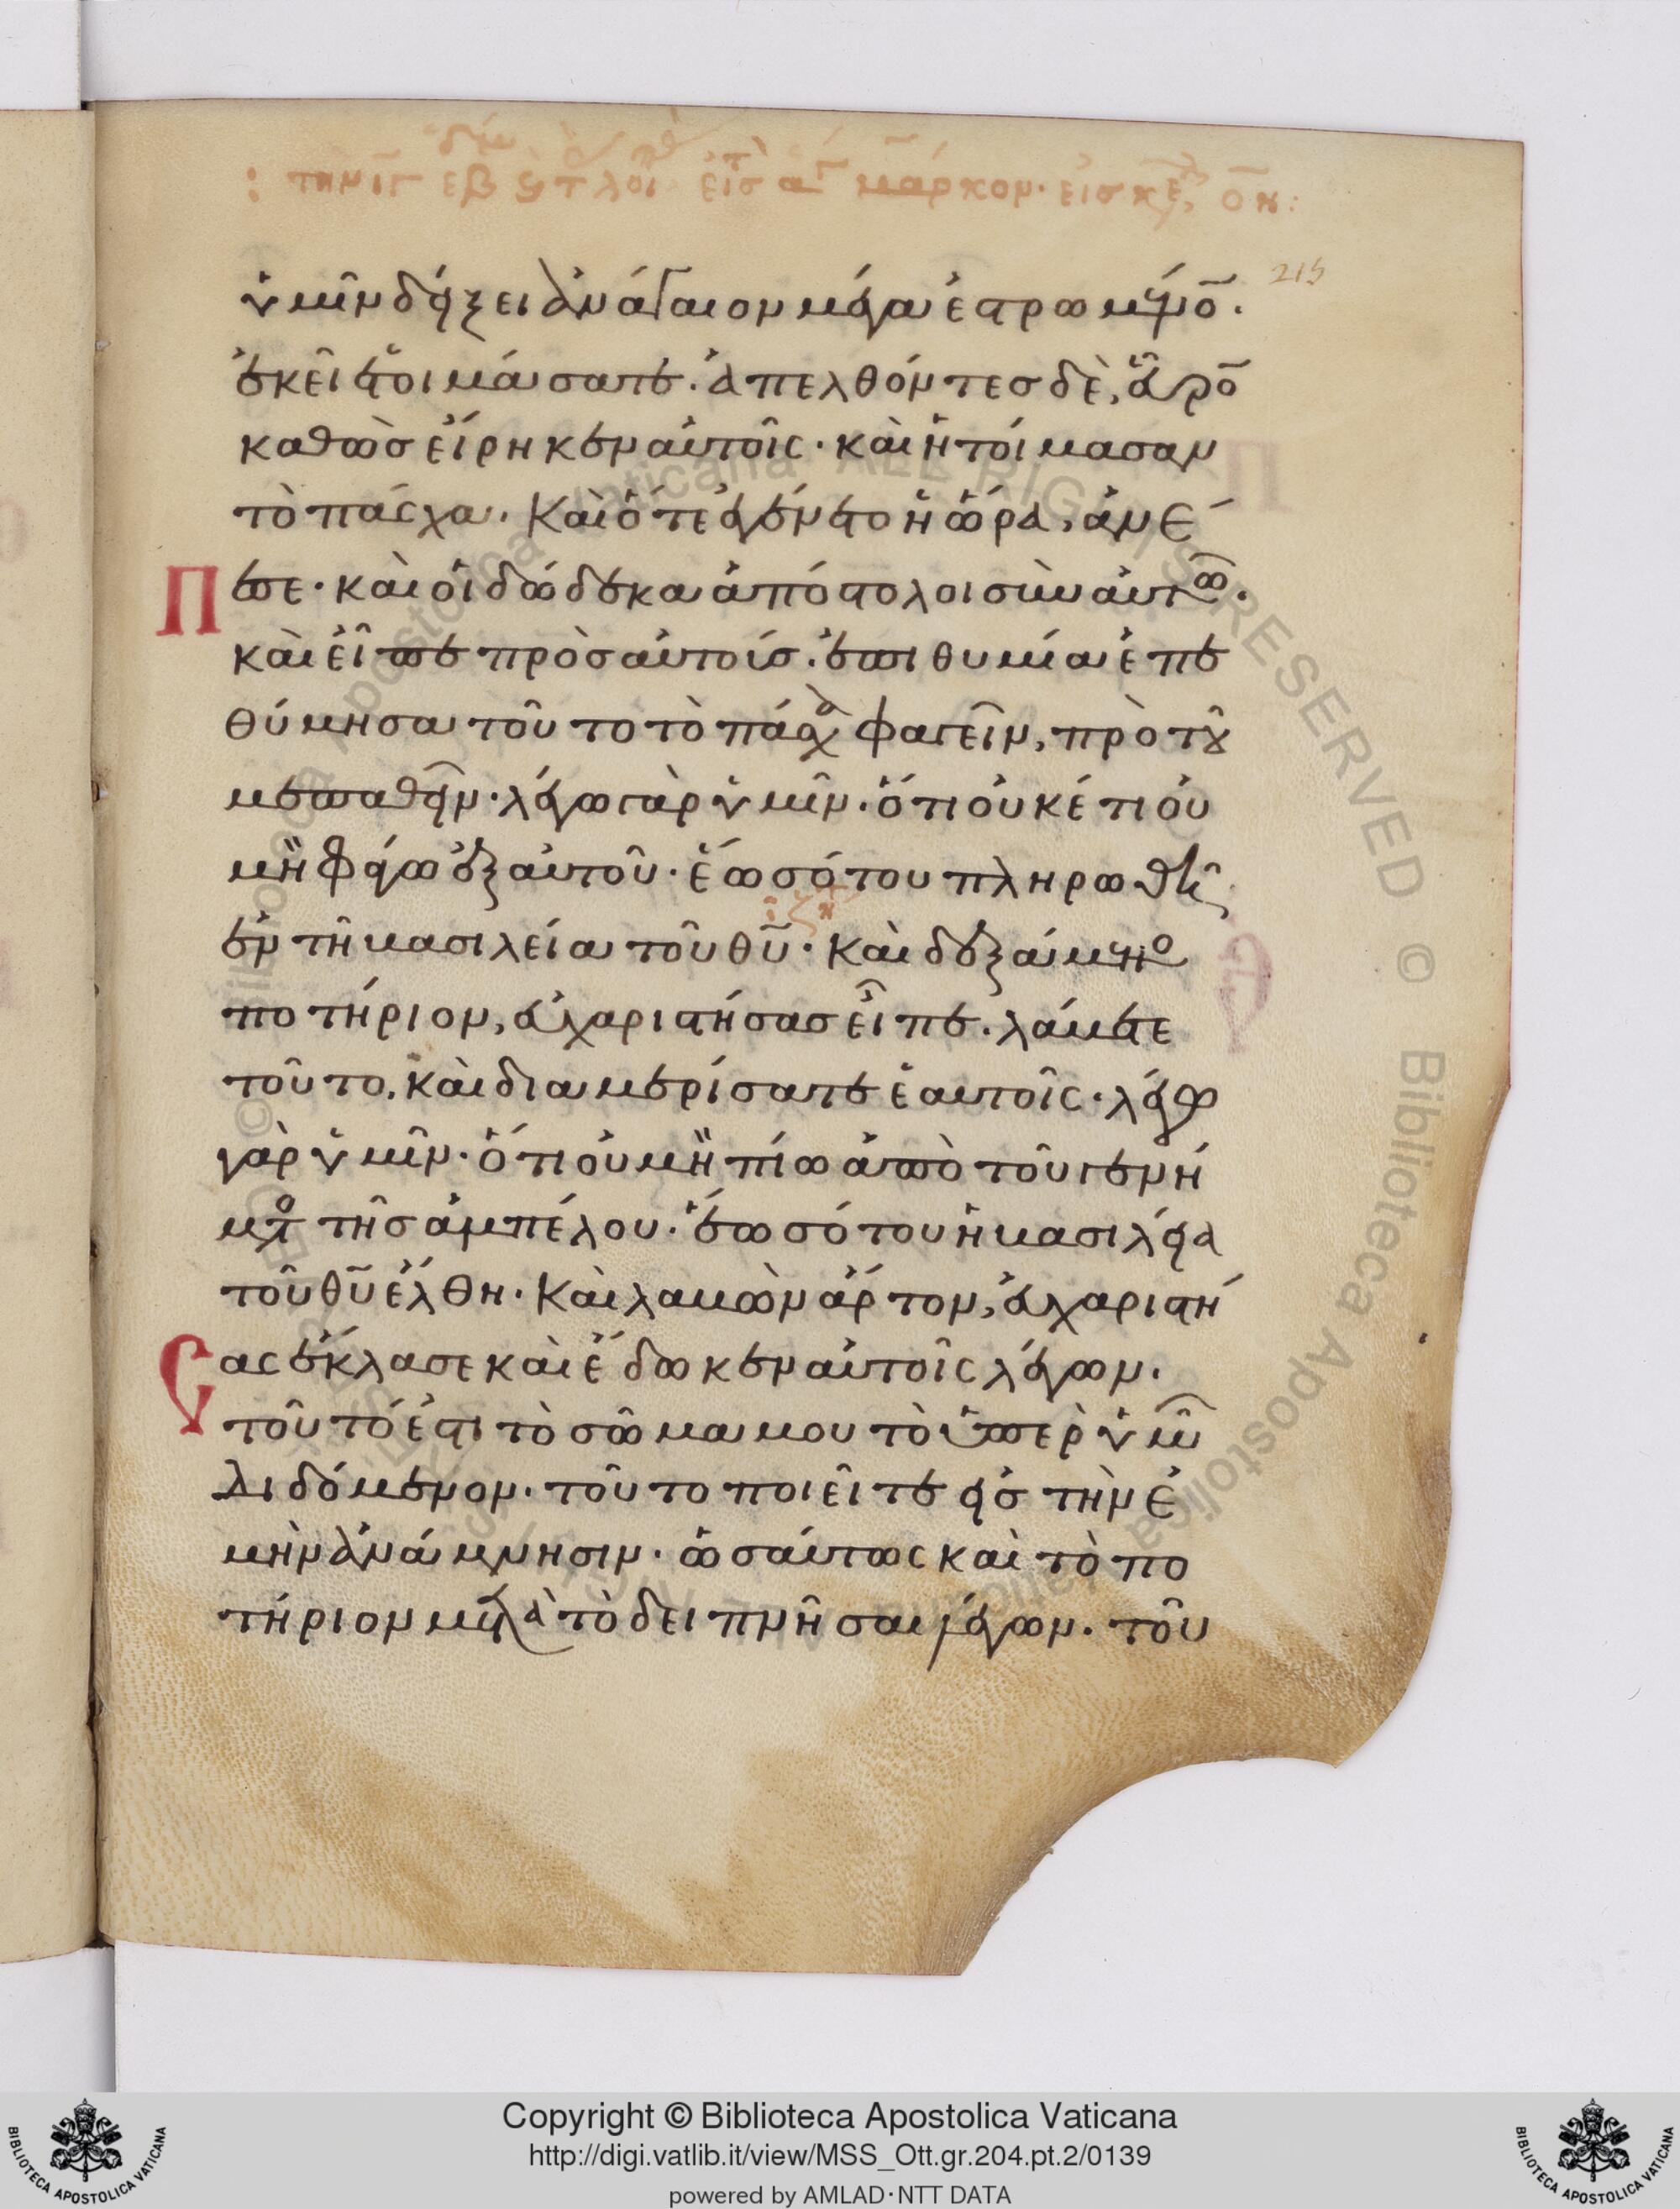 ὑμῖν δείξει ἀνάγαιον μέγα ἐστρωμένο̄.
ἐκεῖ ἑτοιμάσατε. ἀπελθόντες δὲ, εὗρο̄
καθὼσ εἴρηκεν αὐτοῖς. καὶ ἡτοίμασαν
τὸ πάσχα. Καὶ ὅτε ἐγένετο ἡ ὥρα, ἀνέ
Πεσε. καὶ οἱ δώδεκα ἀπόστολοι σὺν αὐτῶ.
καὶ εἶπε πρὸσ αὐτούσ. ἐπιθυμία ἐπε
θύμησα τοῦτο τὸ πάσχα φαγεῖν, πρὸ τοῦ
με παθεῖν. λέγω γὰρ ὑμῖν. ὅτι οὐκέτι οὐ
μὴ φάγω ἐξ αὐτοῦ. ἕωσ ὅτου πληρωθῆ
ἐν τῆ βασιλεία τοῦ θῦ. Καὶ δεξάμενο
ποτήριον, εὐχαριστήσασ εἶπε. λάβετε
τοῦτο, καὶ διαμερίσατε ἑαυτοῖς. λέγω
γὰρ ὑμῖν. ὅτι οὐ μὴ πίω ἀπὸ τοῦ γενή
μτο τῆσ ἀμπέλου. ἕωσ ὅτου ἡ βασιλεία
τοῦ θῦ ἔλθη. Καὶ λαβὼν ἄρτον, εὐχαριστή
Σας ἔκλασε καὶ ἔδωκεν αὐτοῖς λέγων.
τοῦτό ἐστι τὸ σῶμα μου τὸ ὑπὲρ ὑμῶ
διδόμενον. τοῦτο ποιεῖτε εἰσ τὴν ἐ
μὴν ἀνάμνησιν. ὡσαύτως καὶ τὸ πο
τήριον μετὰ τὸ δειπνῆσαι λέγων. τοῦ
215
Copyright © Biblioteca Apostolica Vaticana
http://digi.vatlib.it/view/MSS_Ott.gr.204.pt.2/0139
powered by AMLAD·NTT DATA
BIBLIOTECA APOSTOLICA VATICANA
BIBLIOTECA APOSTOLICA VATICANA